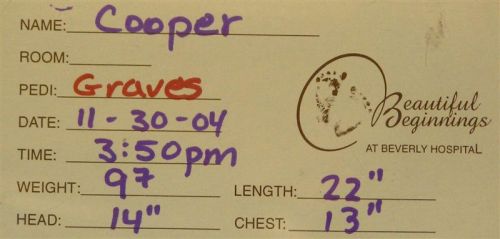 NAME: Cooper
ROOM:
PEDI: Graves
DATE: 11-30-04
TIME: 3:50pm
WEIGHT: 97 LENGTH: 22"
HEAD: 14" CHEST: 13"
Beautiful
Beginnings
AT BEVERLY HOSPITAL